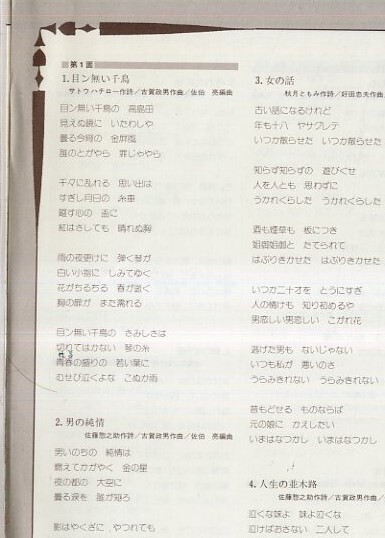 第1面
1.目ン無い千鳥
サトウハチロー作詩/古賀政男作曲/佐伯 亮編曲
目ン無い千鳥の 高島田
見えぬ鏡に いたわしや
曇る今宵の 金屏風
誰のとがやら 罪じゃやら
千々に乱れる 思い出は
すぎし月日の 糸車
廻す心の 盃に
紅はさしても 晴れぬ胸
雨の夜更けに 弾く琴が
白い小指に しみてゆく
花がちるちる 春が逝く
胸の扉が また濡れる
目ン無い千鳥の さみしさは
切れてはかない 琴の糸
青春の盛りの 若い葉に
むせび泣くよな こぬか雨
2.男の純情
佐藤惣之助作詩/古賀政男作曲/佐伯 亮編曲
男いのちの 純情は
燃えてかがやく 金の星
夜の都の 大空に
曇る涙を 誰が知ろ
影はやくざに やつれても
3.女の話
秋月ともみ作詩/好田忠夫作曲
古い話になるけれど
年も十八 ヤサグレテ
いつか散らせた いつか散らせた
知らず知らずの 遊びぐせ
人を人とも 思わずに
うかれくらした うかれくらした
酒も煙草も 板につき
姐御姐御と たてられて
はぶりきかせた はぶりきかせた
いつか二十才を とうにすぎ
人の情けも 知り初めるや
男恋しい男恋しい こがれ花
逃げた男も ないじゃない
いつも私が 悪いのさ
うらみきれない うらみきれない
昔もどせる ものならば
元の娘に かえしたい
いまはなつかし いまはなつかし
4.人生の並木路
佐藤惣之助作詩/古賀政男作曲/
泣くな妹よ 妹よ泣くな
泣けばおさない 二人して